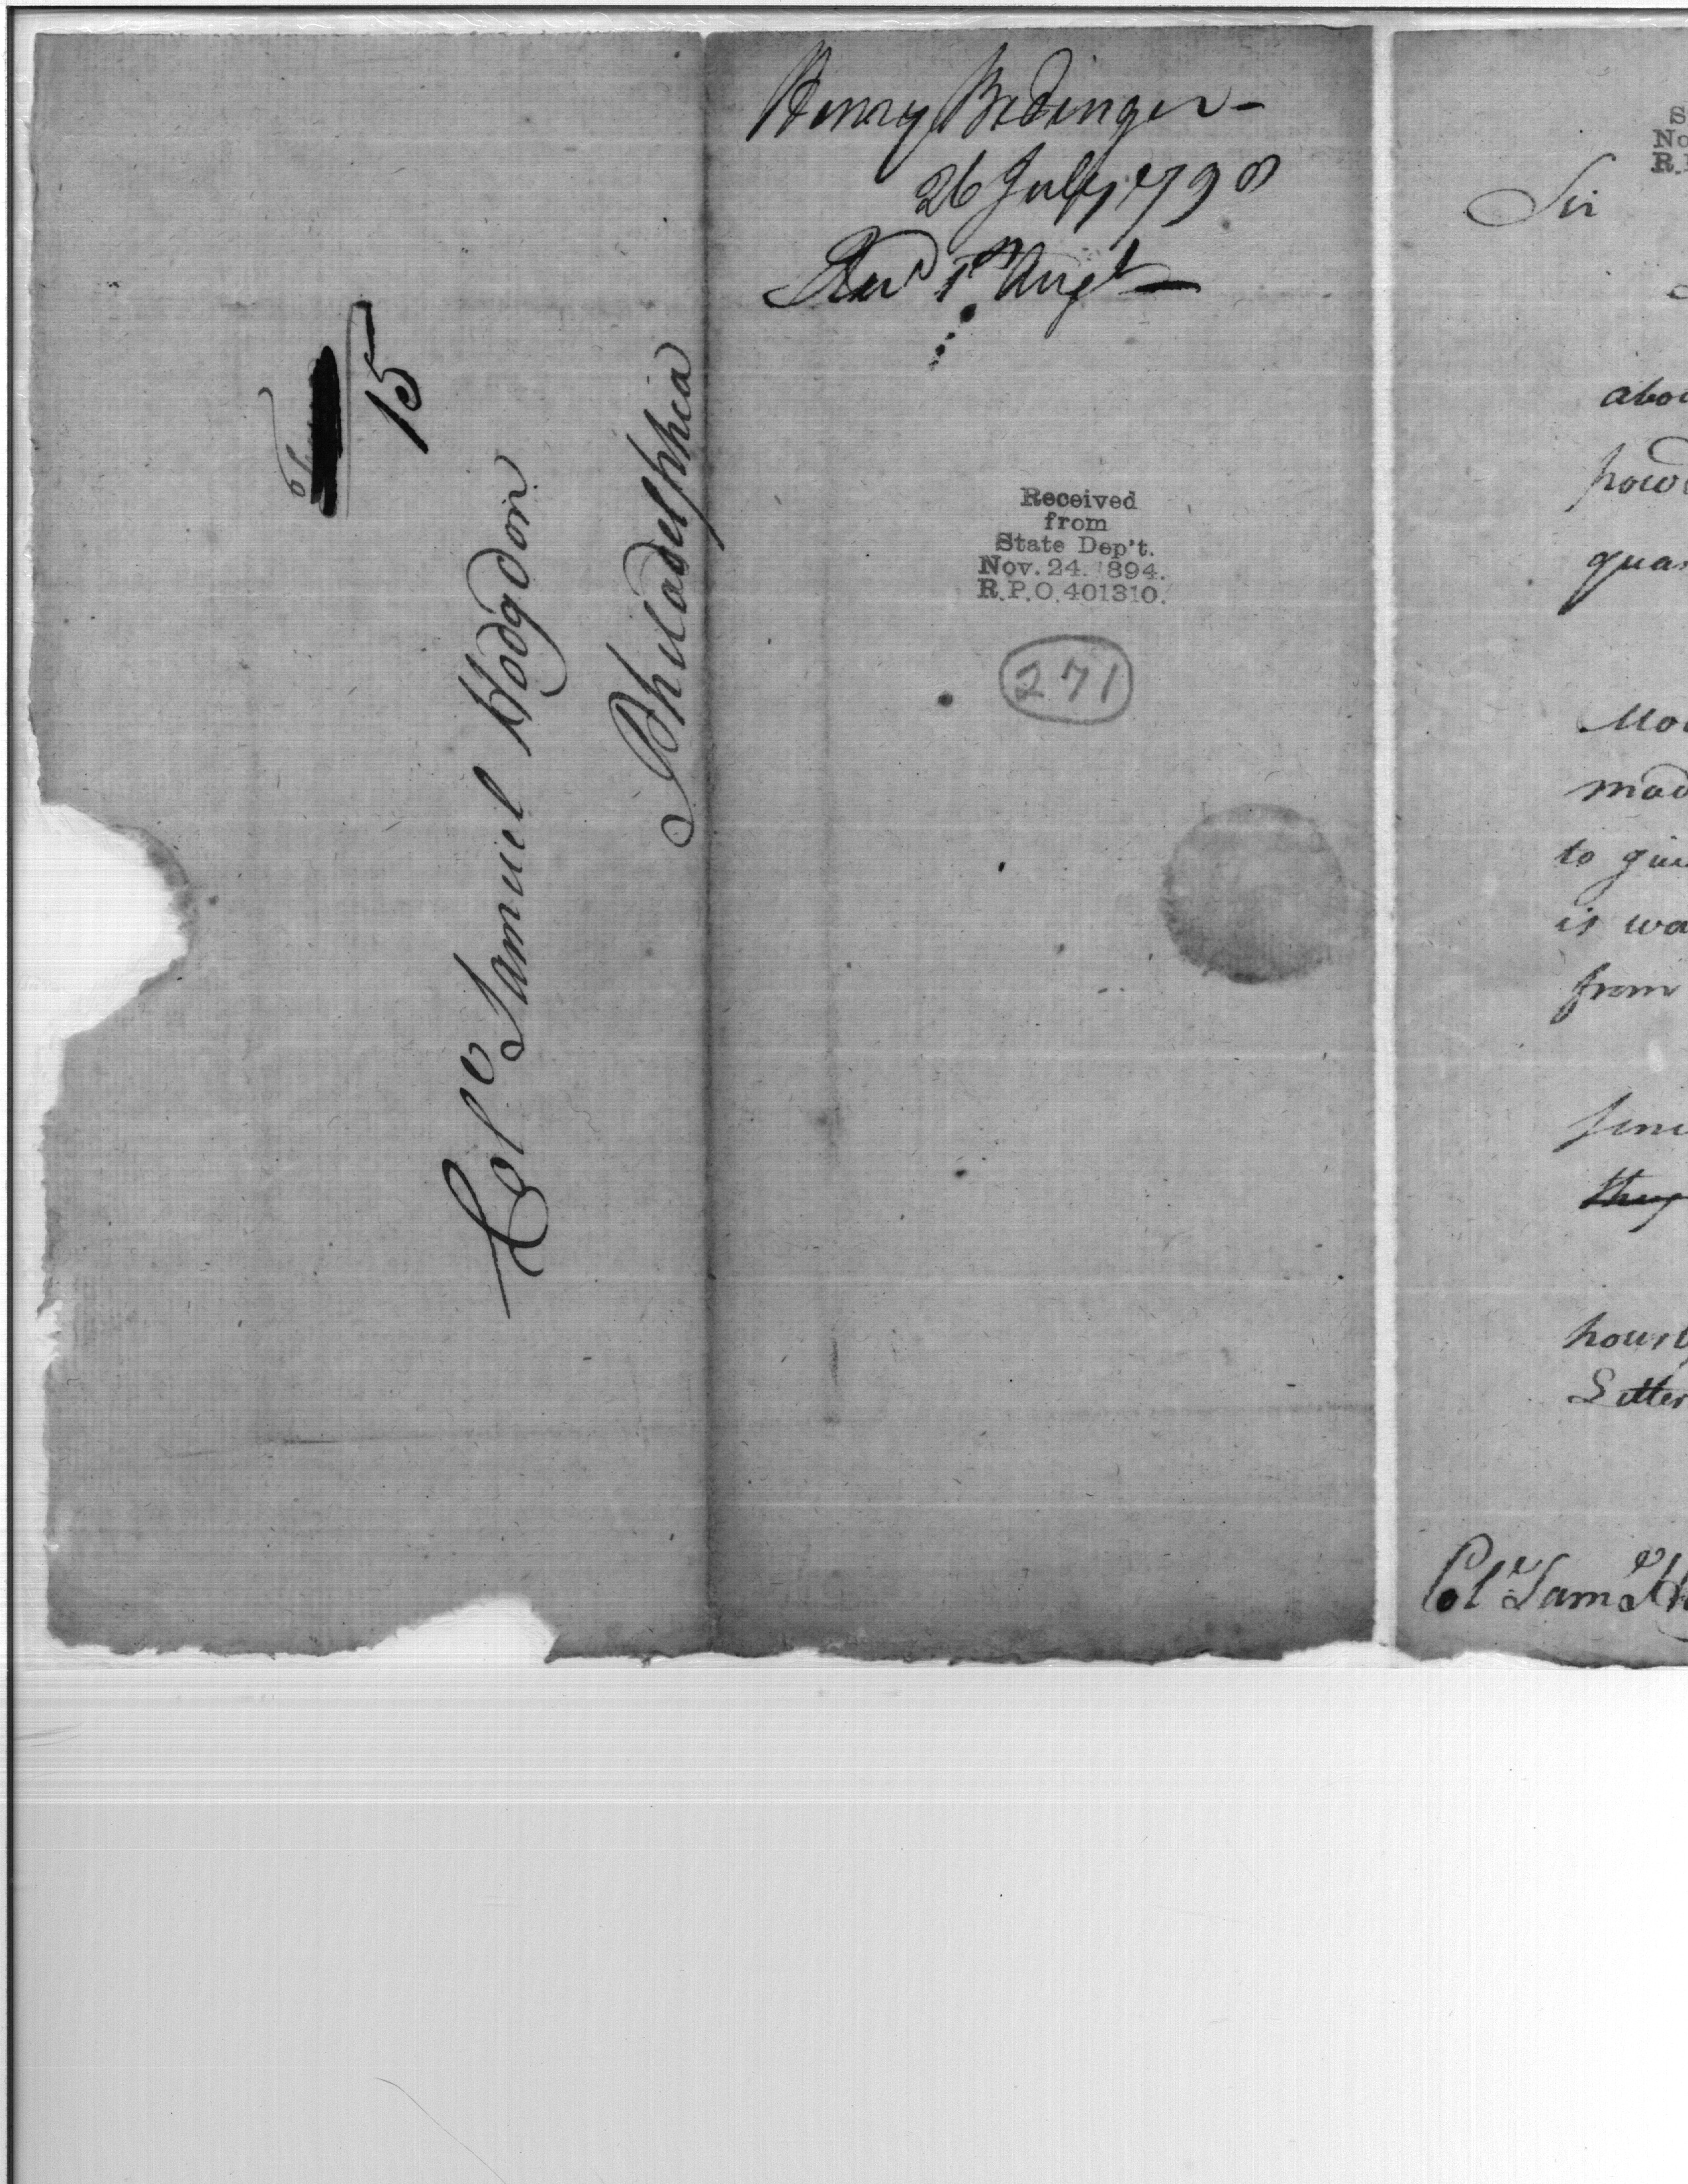 15
Colo Samuel Hodgdon
Philadelphia
Henry Bedinger -
26 July 1798
Recd 1st Augt
Received
from
State Dep't.
Nov. 24. 1894.
R.P.O. 401310.
271
S
No
R.
Sir
abou
powd
quan
Mo
mad
to giv
is wa
from
sinc
they
hous
Letter
Colo Saml H